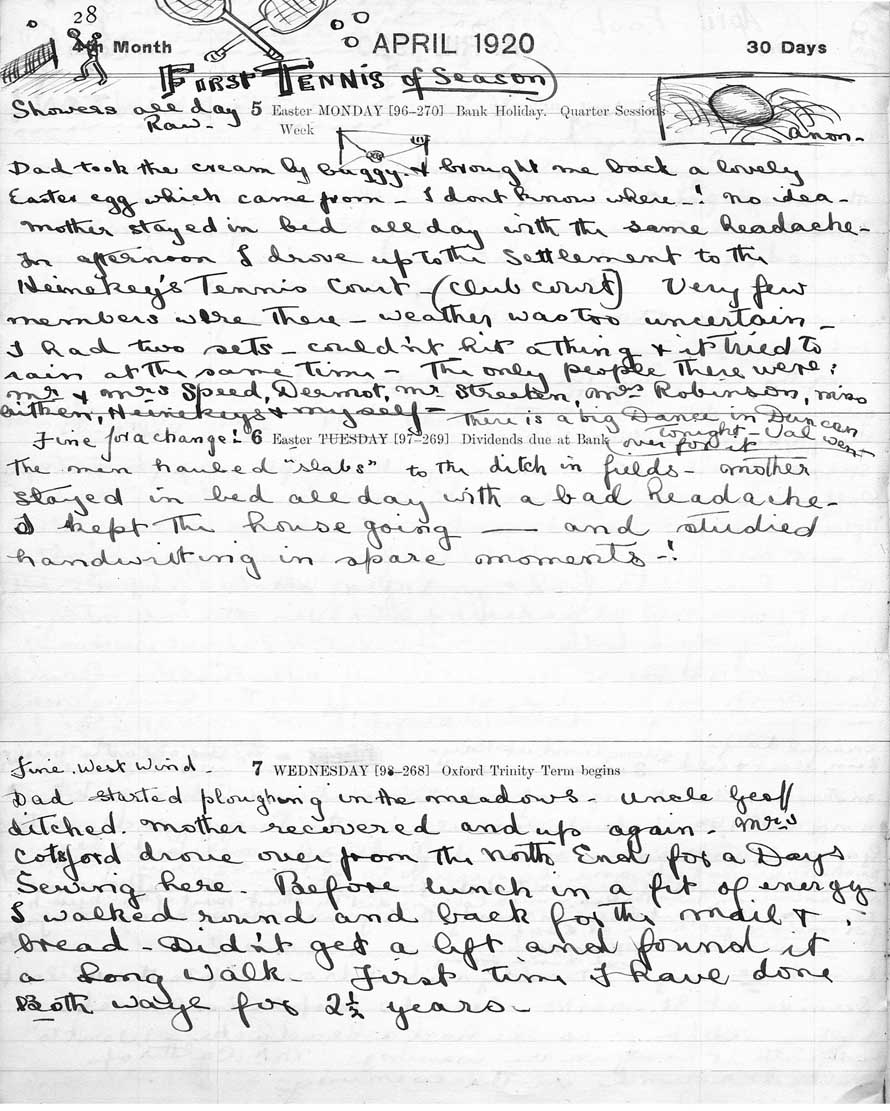 28
4th Month APRIL 1920 30 Days
First Tennis of Season
Showers all day 5 Easter MONDAY [96–270] Bank Holiday. Quarter Sessions
Raw– Week
anon–
Dad took the cream by buggy & brought me back a lovely
Easter egg which came from – I dont know where –! no idea –
Mother stayed in bed all day with the same headache –
In afternoon I drove up to the Settlement to the
Heinekey's Tennis Court – (Club court) Very few
members were there – weather was too uncertain –
I had two sets – could'nt hit a thing & it tried to
rain at the same time – The only people there were:
Mr & Mrs Speed, Dermot, Mr Streeten, Mrs Robinson, Miss
Aitken, Heinekeys & myself – There is a big Dance in Duncan
tonight – Val went
over for it
Fine for a change! – 6 Easter TUESDAY [97–269] Dividends due at Bank
The men hauled "slabs" to the ditch in fields – Mother
stayed in bed all day with a bad headache –
I kept the house going — and studied
handwriting in spare moments –!
Fine. West Wind – 7 WEDNESDAY [98–268] Oxford Trinity Term begins
Dad started ploughing in the meadows – Uncle Geoff
ditched. Mother recovered and up again – Mrs
Cotsford drove over from the North End for a Days
Sewing here. Before lunch in a fit of energy
I walked round and back for the mail &
bread – Did'nt get a lift and found it
a Long Walk – First time I have done
Both ways for 2½ years –